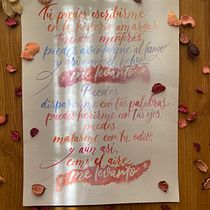 Tú puedes escribirme
en la historia amargas,
torcidas mentiras,
puedes aventarme al fango
y así, como el polvo,
me levanto.
Puedes
dispararme con tus palabras,
puedes herirme con tus ojos,
puedes
matarme con tu odio,
y aún así,
como el aire,
me levanto.